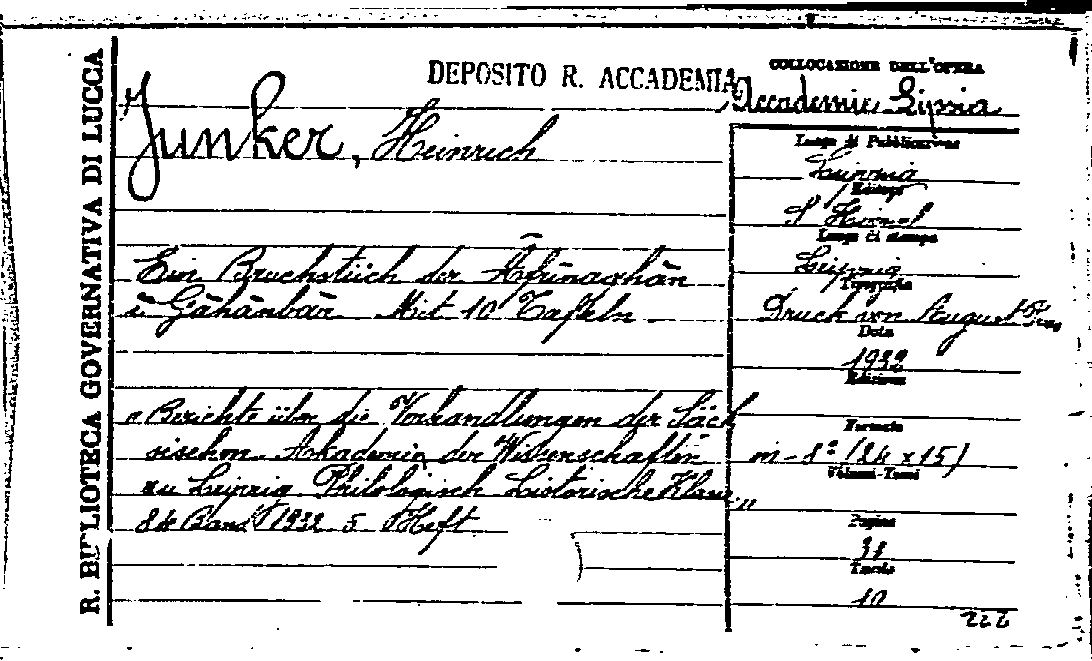 R. BIBLIOTECA GOVERNATIVA DI LUCCA
DEPOSITO R. ACCADEMIA
COLLOCAZIONE DELL'OPERA
Accademie Lipsia
Junker, Heinrich
Ein Bruchstück der Āfrīnaghān
i Gāhānbār Mit 10 Tafeln
"Berichte über die Verhandlungen der Säch
sischen Akademie der Wissenschaften
zu Leipzig Philologisch historische Klasse"
84 Band 1932 5 Heft
Luogo di Pubblicazione
Leipzig
Editori
S Hirzel
Luogo di stampa
Leipzig
Tipografia
Druck von August
Data
1932
Edizione
Formato
in-8º (24 x 15)
Volumi-Tomi
Pagine
38
Tavole
10
222